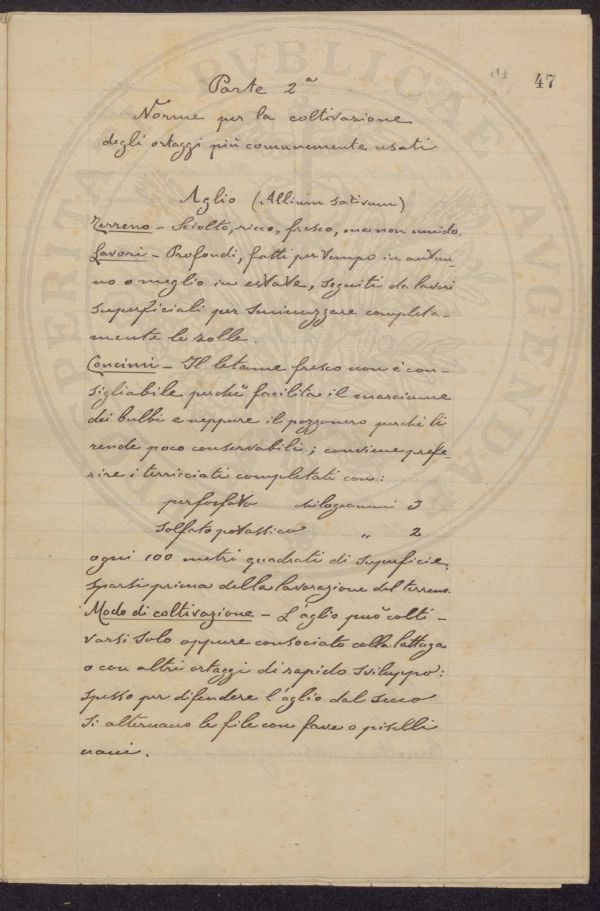 47
Parte 2ª
Norme per la coltivazione
degli ortaggi più comunemente usati
Aglio (Allium sativum)
Terreno - Sciolto, ricco, fresco, ma non umido.
Lavori - Profondi, fatti per tempo in autun-
no o meglio in estate, seguiti da lavori
superficiali per sminuzzare completa-
mente le zolle.
Concimi - Il letame fresco non è con-
sigliabile perchè facilita il marciume
dei bulbi e neppure il pozzonero perchè li
rende poco conservabili; conviene prefe-
rire i terricciati completati con:
perfosfato chilogrammi 3
solfato potassico " 2
ogni 100 metri quadrati di superficie,
sparsi prima della lavorazione del terreno.
Modo di coltivazione - L'aglio può colti-
varsi solo oppure consociato colla lattuga
o con altri ortaggi di rapido sviluppo:
spesso per difendere l'aglio dal secco
si alternano le file con fave o piselli
nani.
PVBLICAE